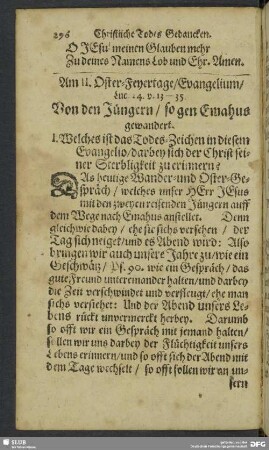 296 Christliche Todes Gedancken.
O JEsu meinen Glauben mehr
Zu deines Namens Lob und Ehr. Amen.
Am II. Oster-Feyertage/Evangelium/
Luc. 24. v. 13 — 35.
Von den Jüngern / so gen Emahus
gewandert.
I. Welches ist das Todes-Zeichen in diesem
Evangelio/darbey sich der Christ sei-
ner Sterbligkeit zu erinnern?
DAs heutige Wander-und Oster-Ge-
spräch / welches unser HErr JEsus
mit den zweyen reisenden Jüngern auff
dem Wege nach Emahus anstellet. Denn
gleich wie dabey / ehe sie sichs versehen / der
Tag sich neiget/und es Abend wird: Also
bringen wir auch unsere Jahre zu/wie ein
Geschwätz / Ps. 90. wie ein Gespräch / das
gute Freund untereinander halten/und darbey
die Zeit verschwindet und verfleugt/ehe man
sichs versiehet: Und der Abend unsers Le-
bens rückt unvermerckt herbey. Darumb
so offt wir ein Gespräch mit jemand halten/
sollen wir uns darbey der Flüchtigkeit unsers
Lebens erinnern/und so offt sich der Abend mit
dem Tage wechselt / so offt sollen wir an un-
sern
SLUB